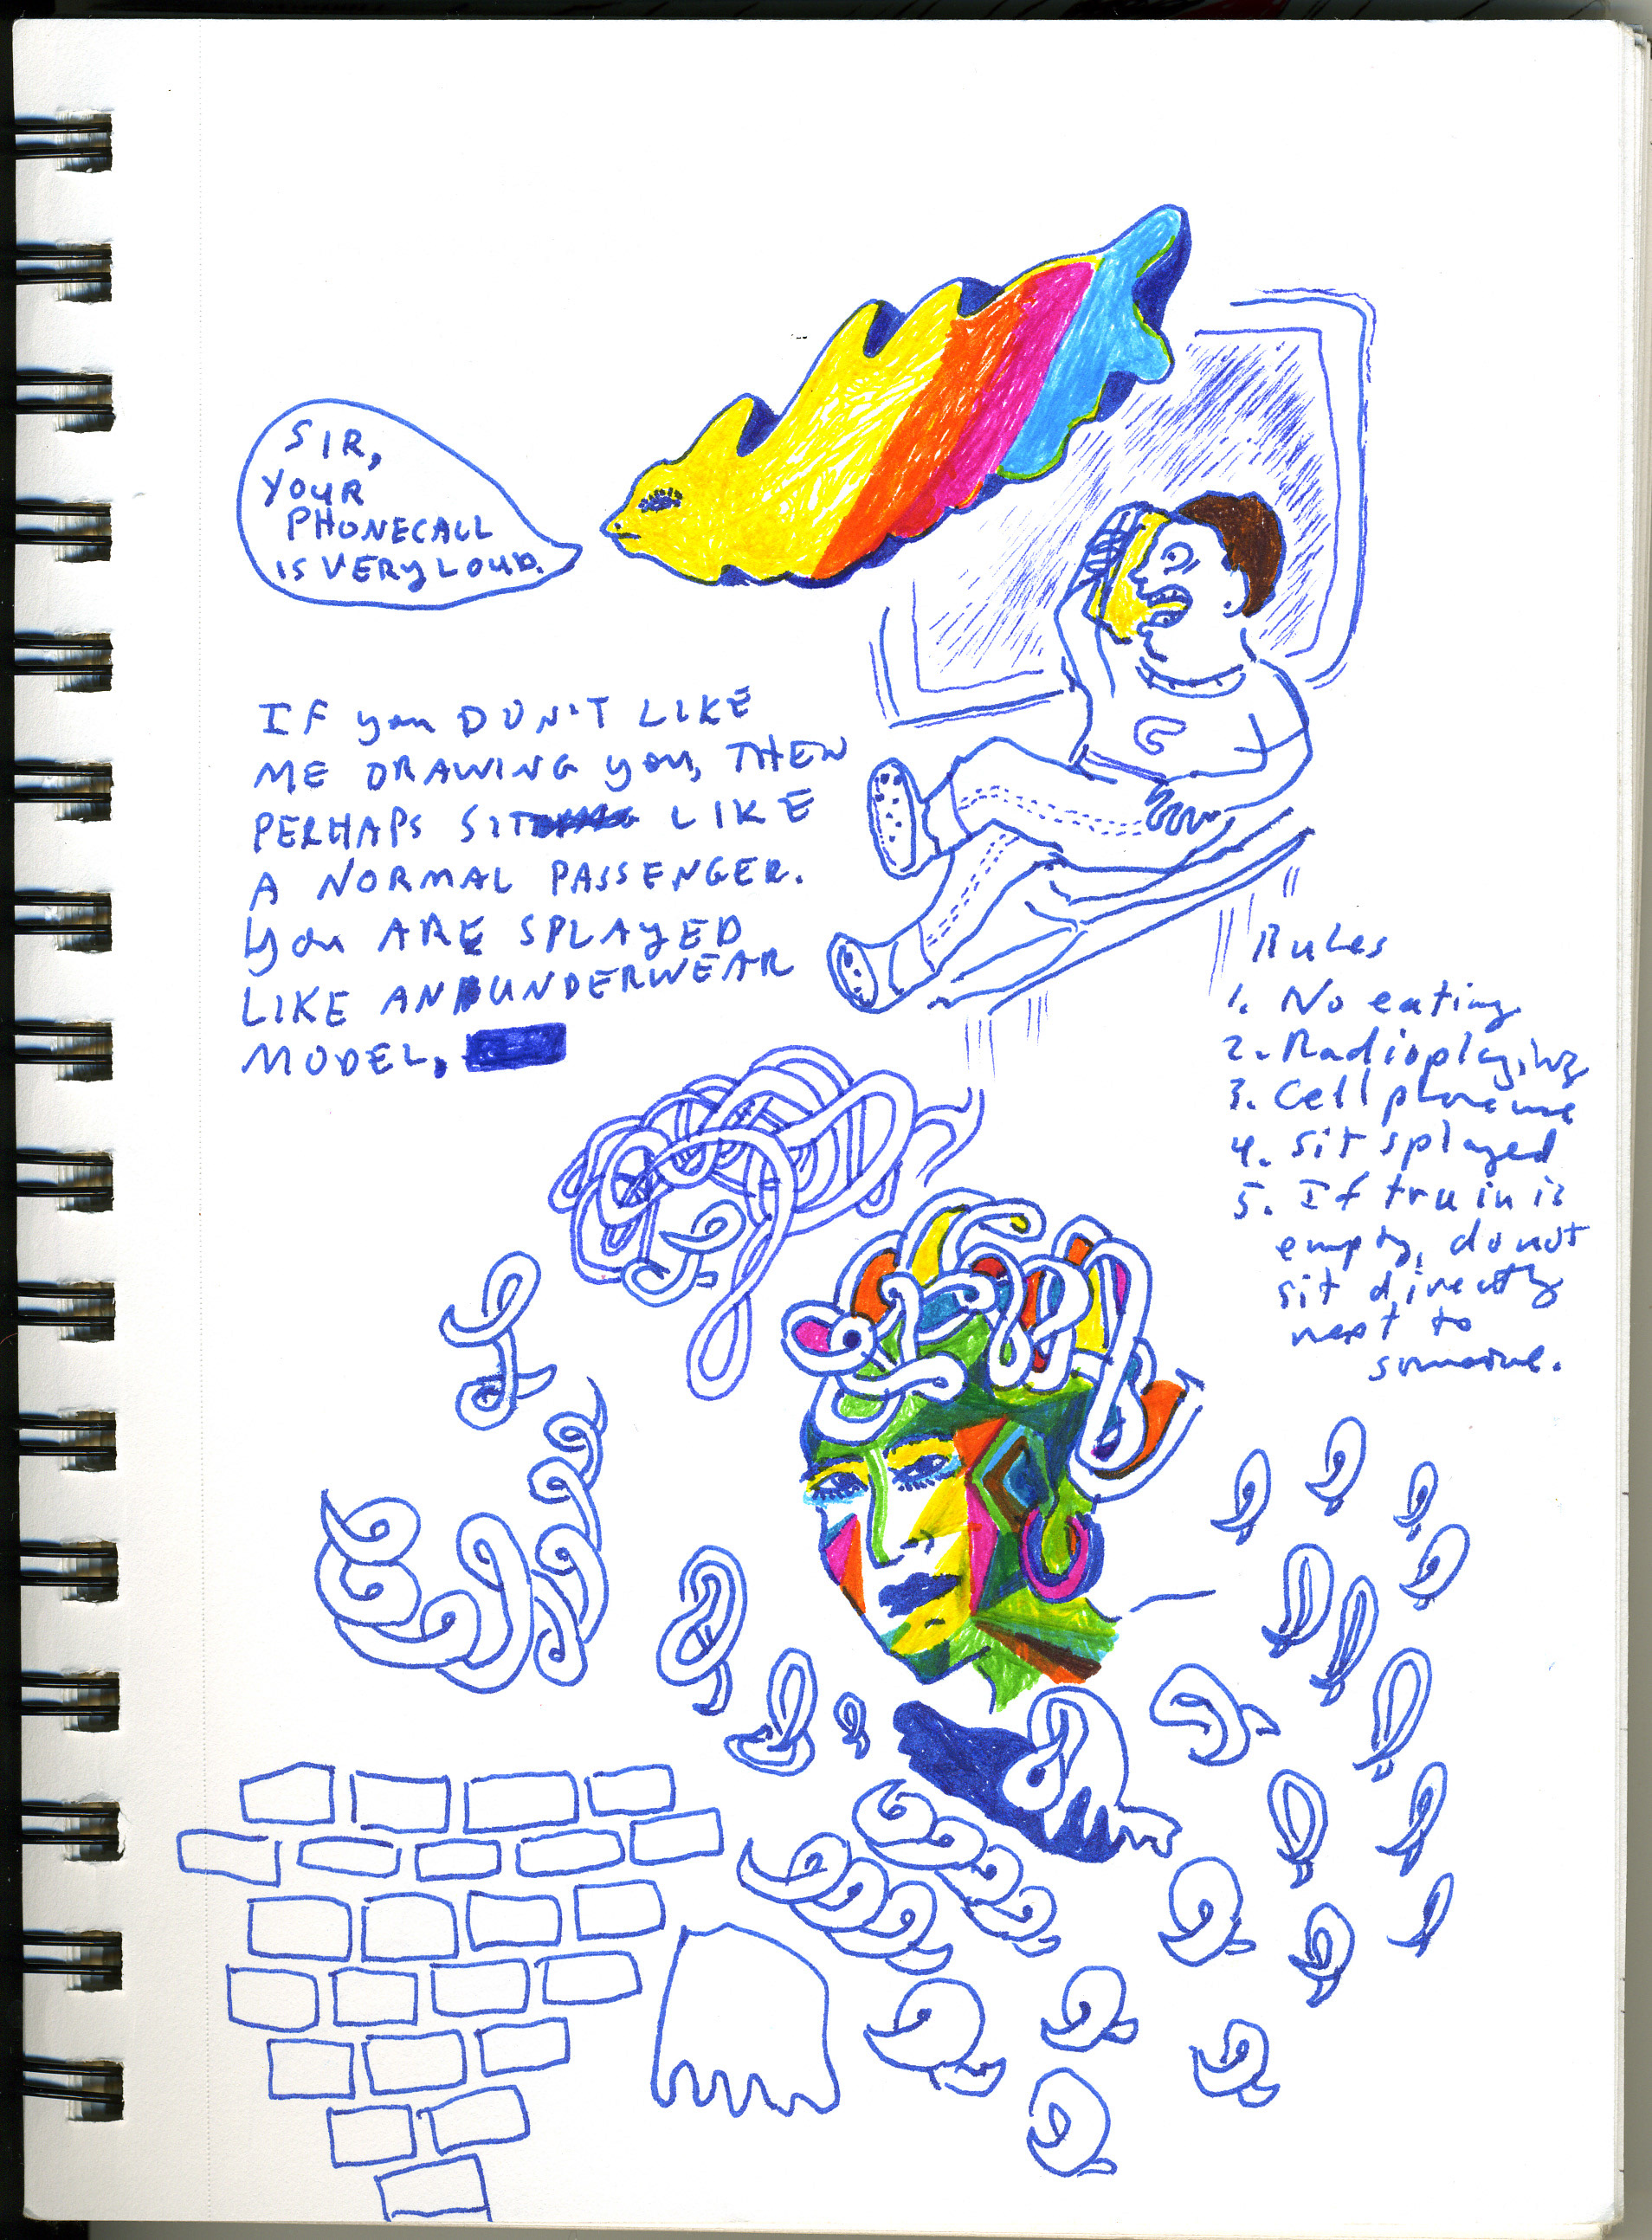 SIR,
YOUR
PHONECALL
IS VERY LOUD.
IF you DON'T LIKE
ME DRAWING you, THEN
PERHAPS SIT LIKE
A NORMAL PASSENGER.
you ARE SPLAYED
LIKE AN UNDERWEAR
MODEL.
Rules
1. No eating
2. Radioplaying
3. Cell phone use
4. sit splayed
5. If train is
empty, do not
sit directly
next to
someone.